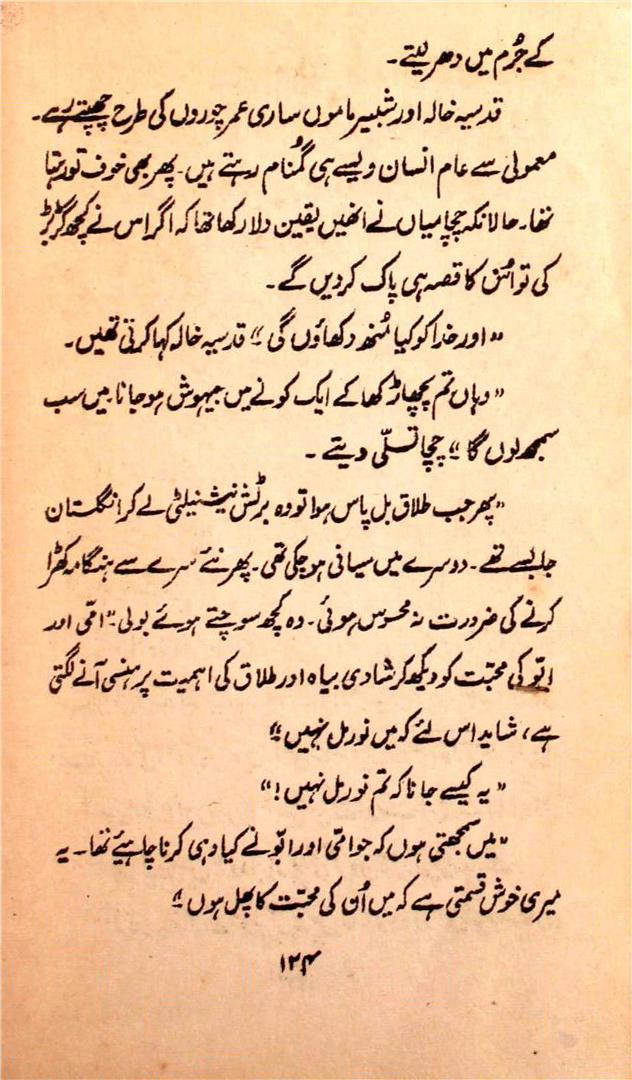 کے جُرم میں دھر لیتے۔
قدسیہ خالہ اور شبیر ماموں ساری عمر چوروں کی طرح چھپتے رہے۔
معمولی سے عام انسان ویسے ہی گمُنام رہتے ہیں۔ پھر بھی خوف تو رہتا
تھا۔ حالانکہ چچا میاں نے انھیں یقین دلا رکھا تھا کہ اگر اس نے کچھ گڑبڑ
کی تو اسُ کا قصہ ہی پاک کر دیں گے۔
”اور خدا کو کیا مُنھ دکھاؤں گی“ قدسیہ خالہ کہا کرتی تھیں۔
”وہاں تم پچھاڑ کھا کے ایک کونے میں بیہوش ہو جانا۔ میں سب
سمجھ لوں گا“ چچا تسلّی دیتے۔
”پھر جب طلاق بل پاس ہوا تو وہ برٹش نیشنیلٹی لے کر انگلستان
جا بسے تھے۔ دوسرے میں سیانی ہو چکی تھی۔ پھر نئے سرے سے ہنگامہ کھڑا
کرنے کی ضرورت نہ محسوس ہوئی۔ وہ کچھ سوچتے ہوئے بولی۔ ”امّی اور
ابّو کی محبّت کو دیکھ کر شادی بیاہ اور طلاق کی اہمیت پر ہنسی آنے لگتی
ہے، شاید اس لئے کہ میں نورمل نہیں“
”یہ کیسے جانا کہ تم نورمل نہیں!“
”میں سمجھتی ہوں کہ جو امّی اور ابّو نے کیا وہی کرنا چاہیئے تھا۔ یہ
میری خوش قسمتی ہے کہ میں اُن کی محبّت کا پھل ہوں“
۱۲۴